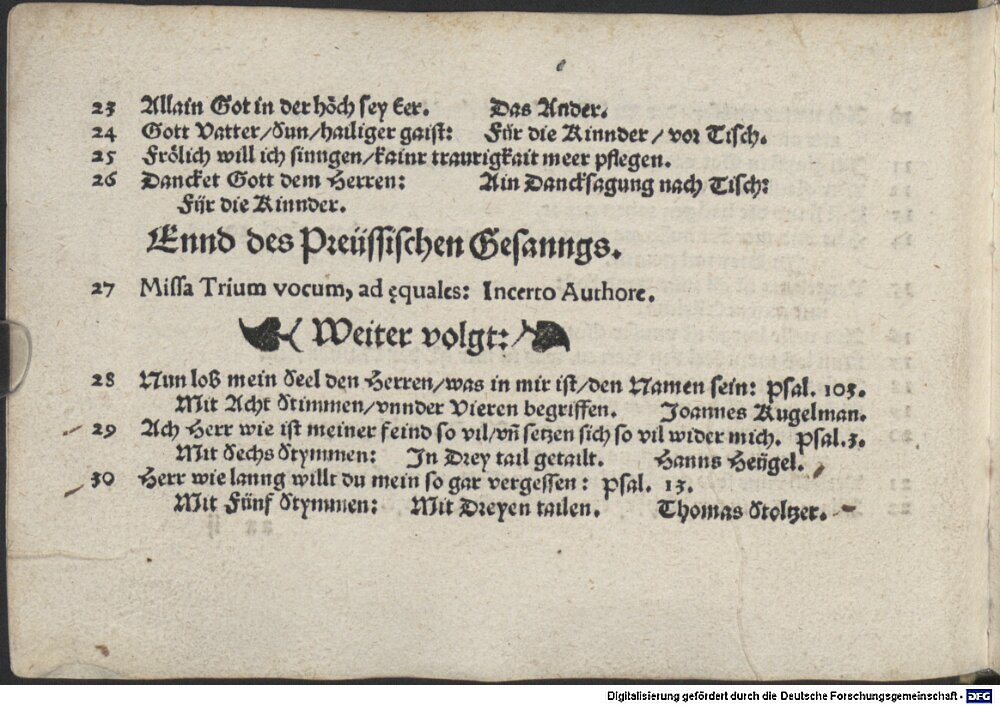 23 Allain Got in der höch sey Eer. Das Ander.
24 Gott Vatter/Sun/hailiger gaist: Für die Kinnder/vor Tisch.
25 Frölich will ich sinngen/kainr traurigkait meer pflegen.
26 Dancket Gott dem Herren: Ain Dancksagung nach Tisch:
Für die Kinnder.
Ennd des Preüssischen Gesanngs.
27 Missa Trium vocum, ad ęquales: Incerto Authore.
Weiter volgt:
28 Nun lob mein Seel den Herren/was in mir ist/den Namen sein: Psal. 103.
Mit Acht Stimmen/vnnder Vieren begriffen. Joannes Kugelman.
29 Ach Herr wie ist meiner feind so vil/vñ setzen sich so vil wider mich. Psal.3.
Mit Sechs Stymmen: In Drey tail getailt. Hanns Heügel.
30 Herr wie lanng willt du mein so gar vergessen: Psal. 13.
Mit Fünf Stymmen: Mit Dreyen tailen. Thomas Stoltzer.
Digitalisierung gefördert durch die Deutsche Forschungsgemeinschaft - DFG